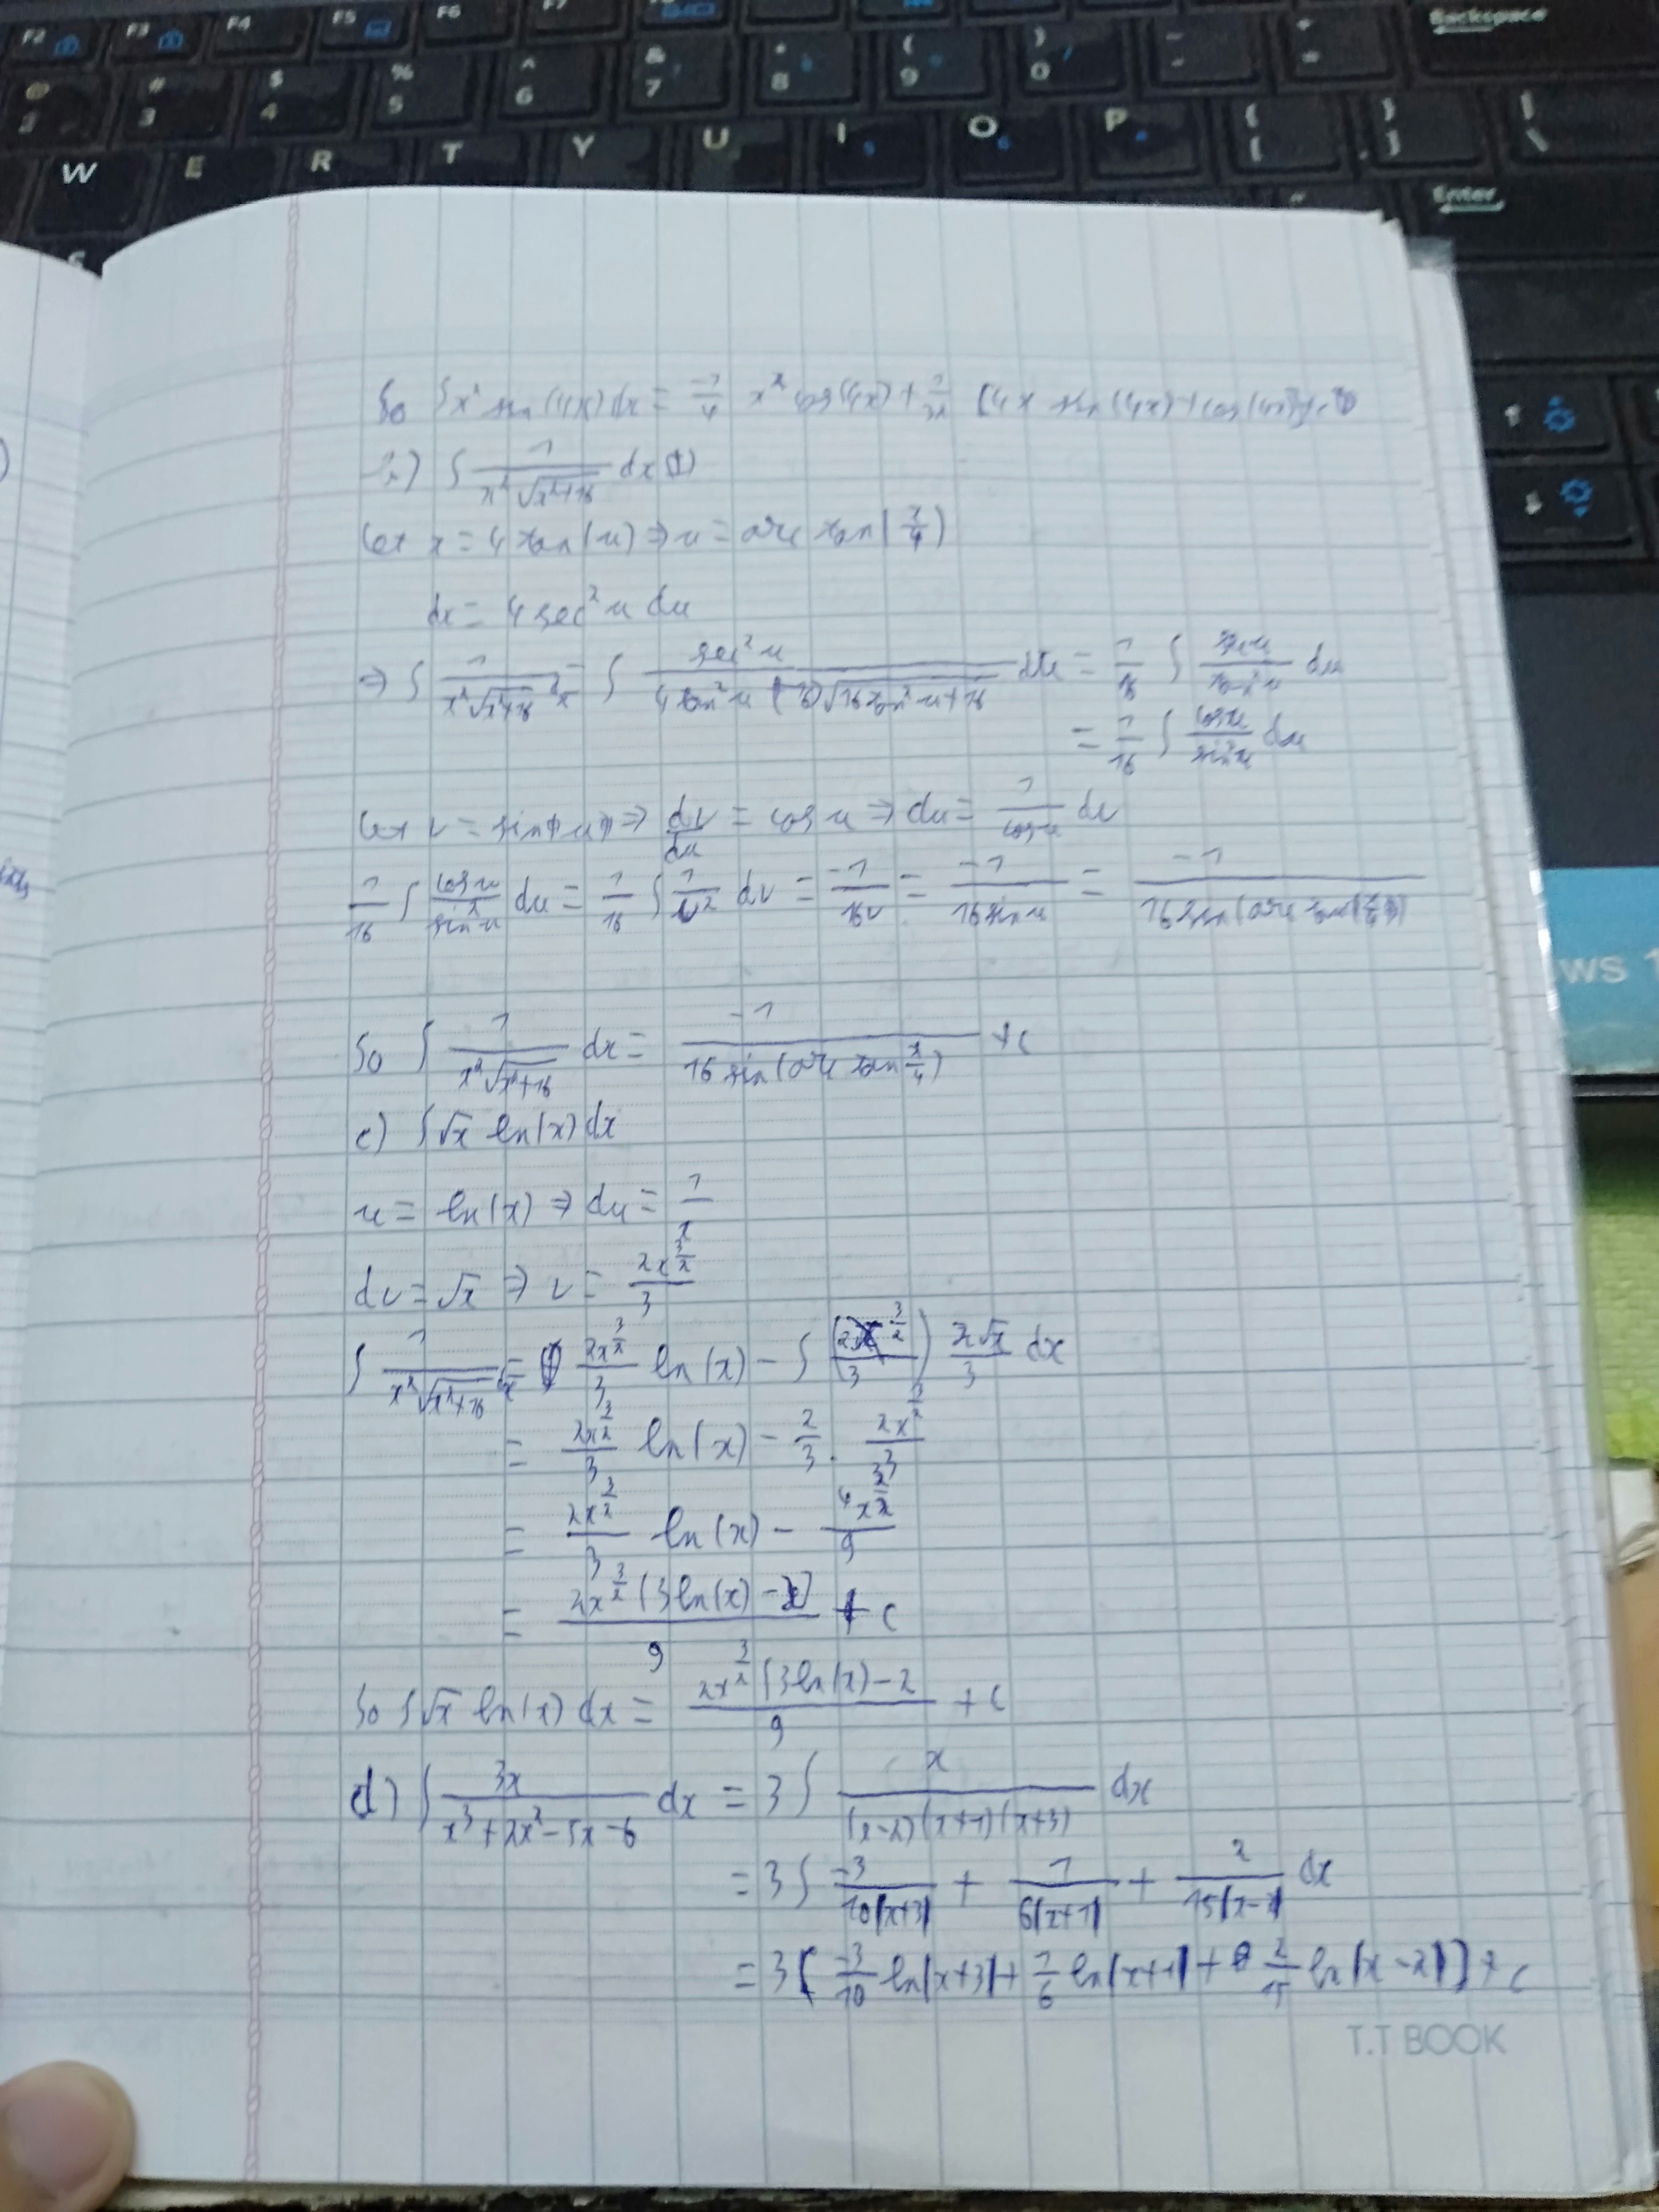 F2 F3 F4 F5 F6 F7 Backspace
@ 2 # 3 $ 4 % 5 ^ 6 & 7 * 8 ( 9 ) 0 _ - + =
W E R T Y U I 5 O 6 P { [ } ] | \
Enter
So ∫x² sin(4x)dx = -1/4 x² cos(4x) + 1/32 [4x sin(4x) + cos(4x)] + c
∫ 1/(x²√(x²+16)) dx (1)
Let x = 4 tan(u) ⇒ u = arc tan(x/4)
dx = 4 sec² u du
⇒ ∫ 1/(x²√(x²+16)) dx = ∫ sec² u/(4 tan² u √(16 tan² u + 16)) du = 1/16 ∫ sec u/tan² u du
= 1/16 ∫ cos u/sin² u du
Let v = sin u ⇒ dv/du = cos u ⇒ du = 1/cos u dv
1/16 ∫ cos u/sin² u du = 1/16 ∫ 1/v² dv = -1/16v = -1/(16 sin u) = -1/(16 sin(arc tan(x/4)))
So ∫ 1/(x²√(x²+16)) dx = -1/(16 sin(arc tan x/4)) + c
c) ∫√x ln(x) dx
u = ln(x) ⇒ du = 1/x
dv = √x ⇒ v = 2x^(3/2)/3
∫ 1/(x²√(x²+16)) dx = 2x^(3/2)/3 ln(x) - ∫ 2√x/3 dx
= 2x^(3/2)/3 ln(x) - 2/3 . 2x^(3/2)/3
= 2x^(3/2)/3 ln(x) - 4x^(3/2)/9
= 2x^(3/2) (3ln(x) - 2)/9 + c
So ∫√x ln(x) dx = 2x^(3/2) (3ln(x) - 2/9 + c
d) ∫ 3x/(x³+2x²-5x-6) dx = 3∫ x/((x-2)(x+1)(x+3)) dx
= 3∫ -3/(10|x+3|) + 1/(6|x+1|) + 2/(15|x-2|) dx
= 3[-3/10 ln|x+3| + 1/6 ln|x+1| + 2/15 ln|x-2|] + c
T.T BOOK
ws 1